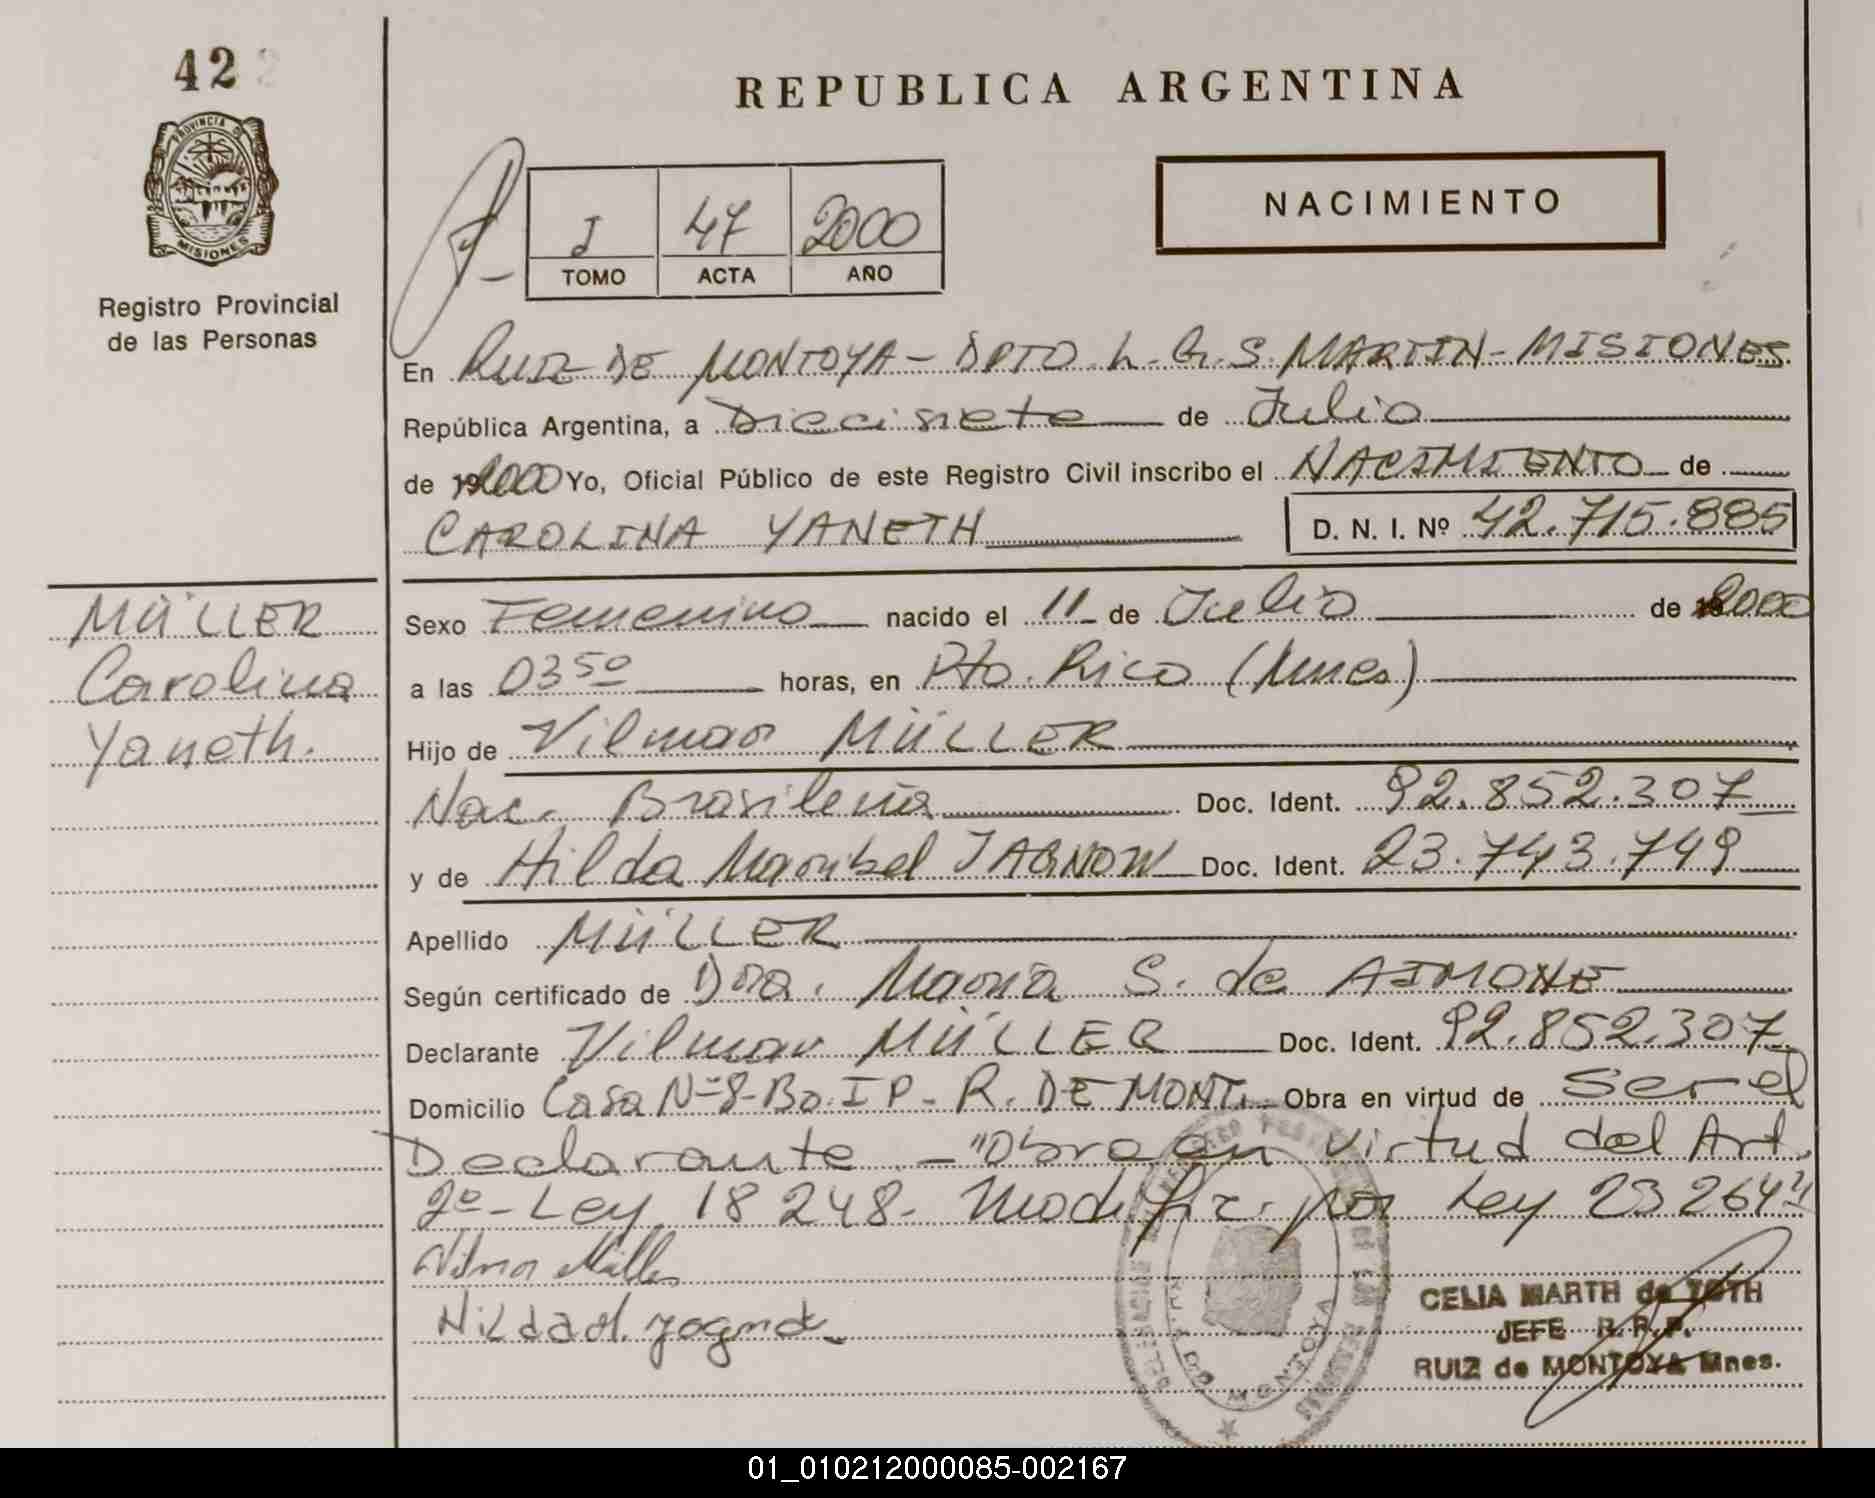 42
PROVINCIA DE
MISIONES
Registro Provincial
de las Personas
REPUBLICA ARGENTINA
NACIMIENTO
I 47 2000
TOMO ACTA AÑO
En RUIZ DE MONTOYA - DPTO. L. G. S. MARTIN - MISIONES
República Argentina, a Diecisiete de Julio
de 2000 Yo, Oficial Público de este Registro Civil inscribo el NACIMIENTO de
CAROLINA YANETH D. N. I. Nº 42.715.885
MÜLLER
Carolina
Yaneth.
Sexo Femenino nacido el 11 de Julio de 2000
a las 03 50 horas, en Pto. Rico (Mnes)
Hijo de Vilmar MÜLLER
Nac. Brasileña Doc. Ident. 92.852.307
y de Hilda Maribel JAGNOW Doc. Ident. 23.743.749
Apellido MÜLLER
Según certificado de Dra. María S. de AIMONE
Declarante Vilmar MÜLLER Doc. Ident. 92.852.307
Domicilio Casa Nº 8-Bo. I P - R. DE MONT. Obra en virtud de Ser el
Declarante. - "Obra en virtud del Art.
2º - Ley 18 248 - Modific. por Ley 23 264"
CELIA MARTH de TOTH
JEFE R. R. P.
RUIZ de MONTOYA Mnes.
RUIZ DE MONTOYA
01_010212000085-002167